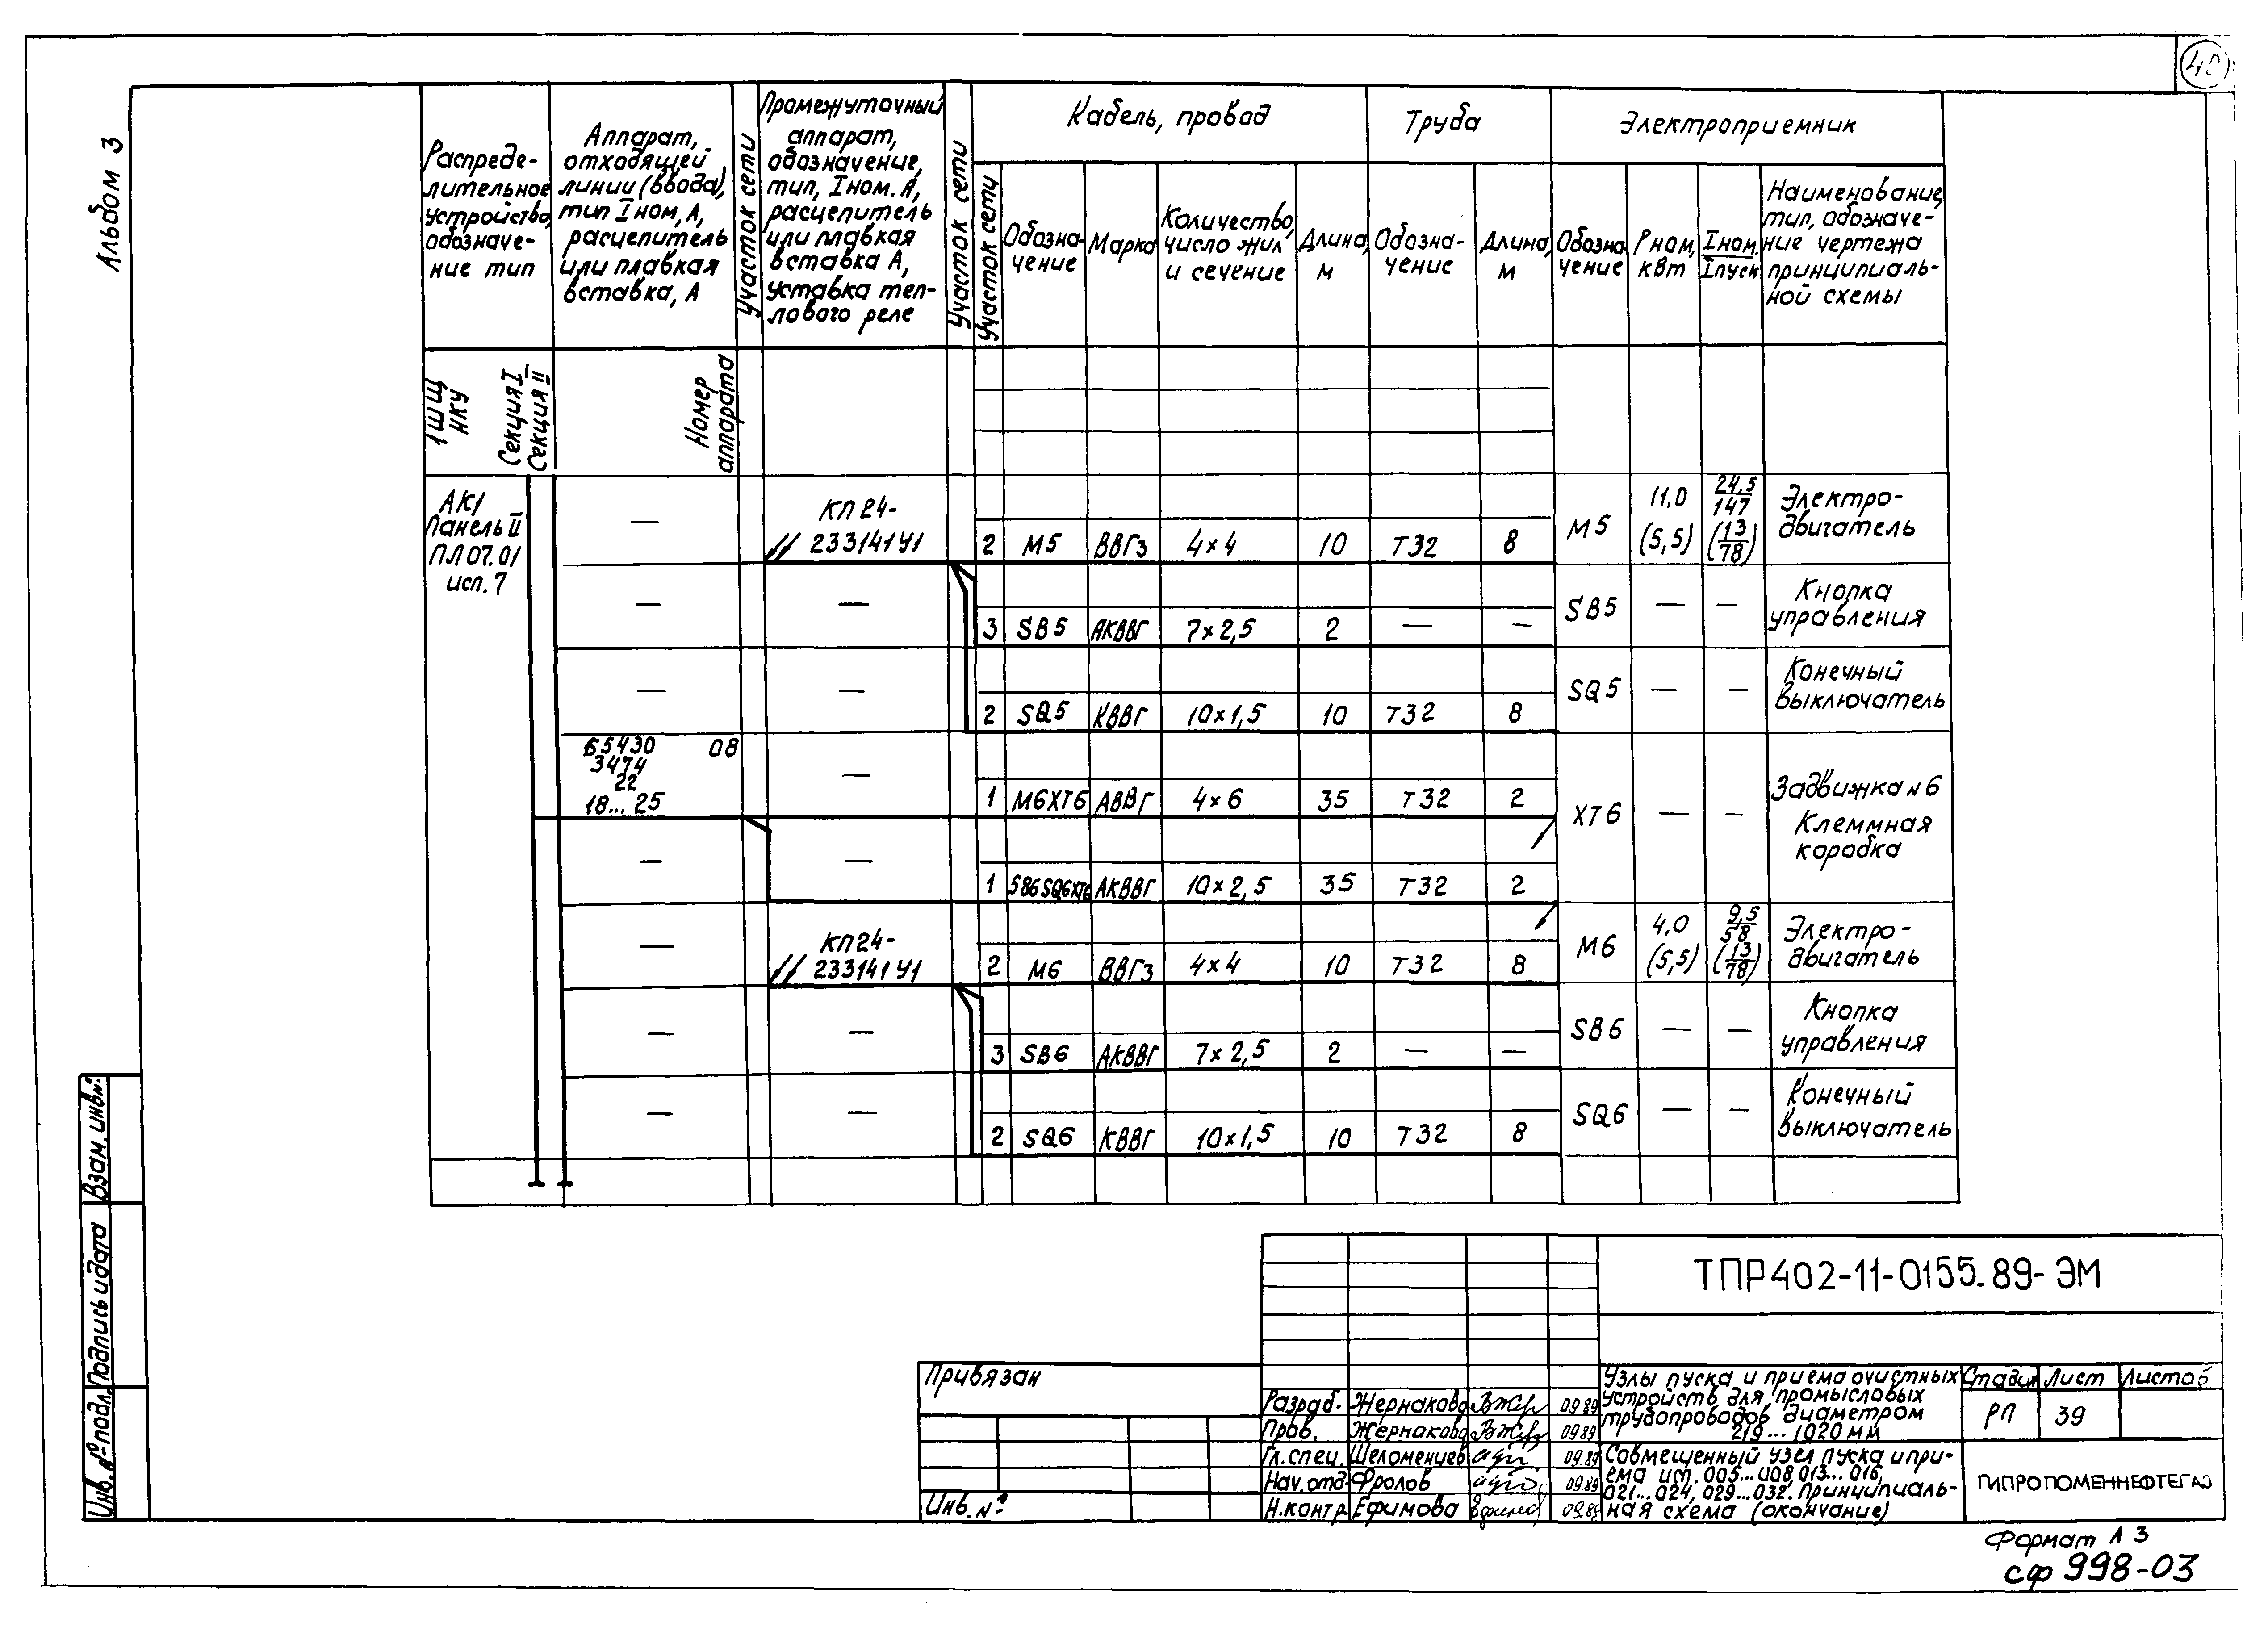 40
Альбом 3
Распреде-
лительное
устройство,
обозначе-
ние тип
Аппарат,
отходящей
линии (ввода),
тип Iном, А,
расцепитель
или плавкая
вставка, А
Участок сети
Промежуточный
аппарат,
обозначение,
тип, Iном. А,
расцепитель
или плавкая
вставка А,
уставка теп-
лового реле
Участок сети
Кабель, провод
Участок сети
Обозна-
чение
Марка
Количество,
число жил
и сечение
Длина,
м
Труба
Обозна-
чение
Длина,
м
Электроприемник
Обозна-
чение
Рном,
кВт
Iном.
Iпуск
Наименование,
тип, обозначе-
ние чертежа
принципиаль-
ной схемы
1ШЩ
НКУ
Секция I
Секция II
Номер
аппарата
АК1
Панель II
ПЛ07.01
исп. 7
— КП24-
233141У1 2 М5 ВВГз 4×4 10 Т32 8 М5 11,0 (5,5) 24,5/147 (13/78) Электро-
двигатель
— — 3 SB5 АКВВГ 7×2,5 2 — — SB5 — — Кнопка
управления
— — 2 SQ5 КВВГ 10×1,5 10 Т32 8 SQ5 — — Конечный
выключатель
Б5430 08
3474
22
18...25
— 1 М6ХТ6 АВВГ 4×6 35 Т32 2 ХТ6 — — Задвижка №6
Клеммная
коробка
— — 1 SB6SQ6ХТ6 АКВВГ 10×2,5 35 Т32 2
— КП24-
233141У1 2 М6 ВВГз 4×4 10 Т32 8 М6 4,0 (5,5) 9,5/58 (13/78) Электро-
двигатель
— — 3 SB6 АКВВГ 7×2,5 2 — — SB6 — — Кнопка
управления
— — 2 SQ6 КВВГ 10×1,5 10 Т32 8 SQ6 — — Конечный
выключатель
Взам. инв.№
Подпись и дата
Инв. № подл.
Привязан
Инв. №
Разраб. Жернакова 09.89
Пров. Жернакова 09.89
Гл.спец. Шеломенцев 09.89
Нач.отд. Фролов 09.89
Н.контр Ефимова 09.89
ТПР402-11-0155.89-ЭМ
Узлы пуска и приема очистных
устройств для промысловых
трубопроводов диаметром
219...1020 мм
Стадия Лист Листов
РП 39
Совмещенный узел пуска и при-
ема шт. 005...008, 013...016,
021...024, 029...032. Принципиаль-
ная схема (окончание)
ГИПРОТЮМЕННЕФТЕГАЗ
Формат А3
сф 998-03